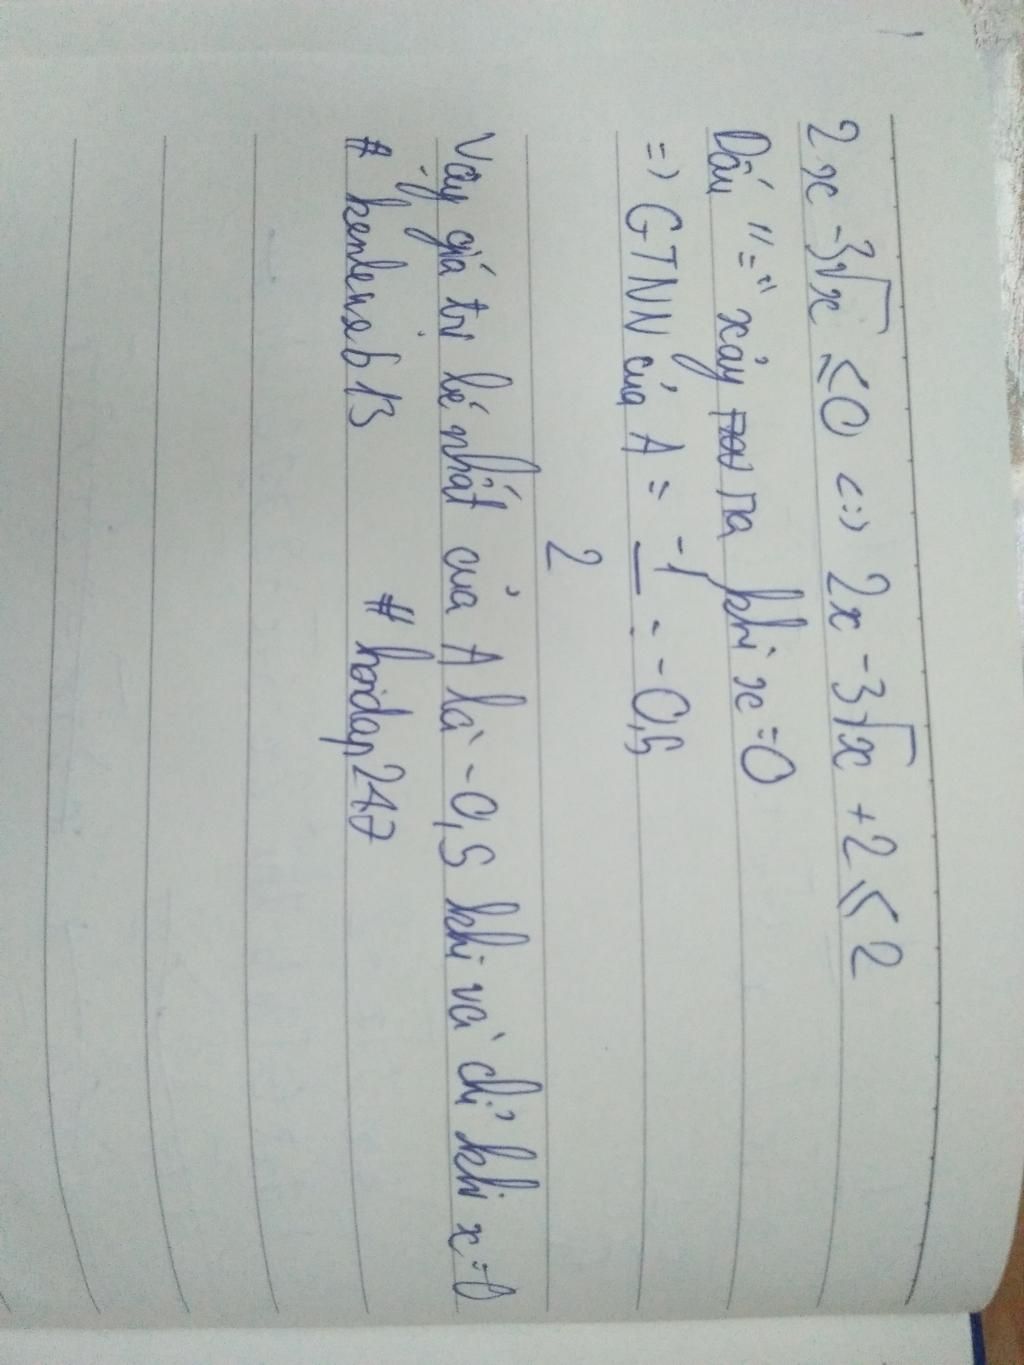 2x - 3√x ≤ 0 <=> 2x - 3√x + 2 ≤ 2
Dấu "=" xảy ra khi x = 0
=> GTNN của A = -1/2 = -0,5
Vậy giá trị bé nhất của A là -0,5 khi và chỉ khi x = 0
# kenlewab13 # hoidap247